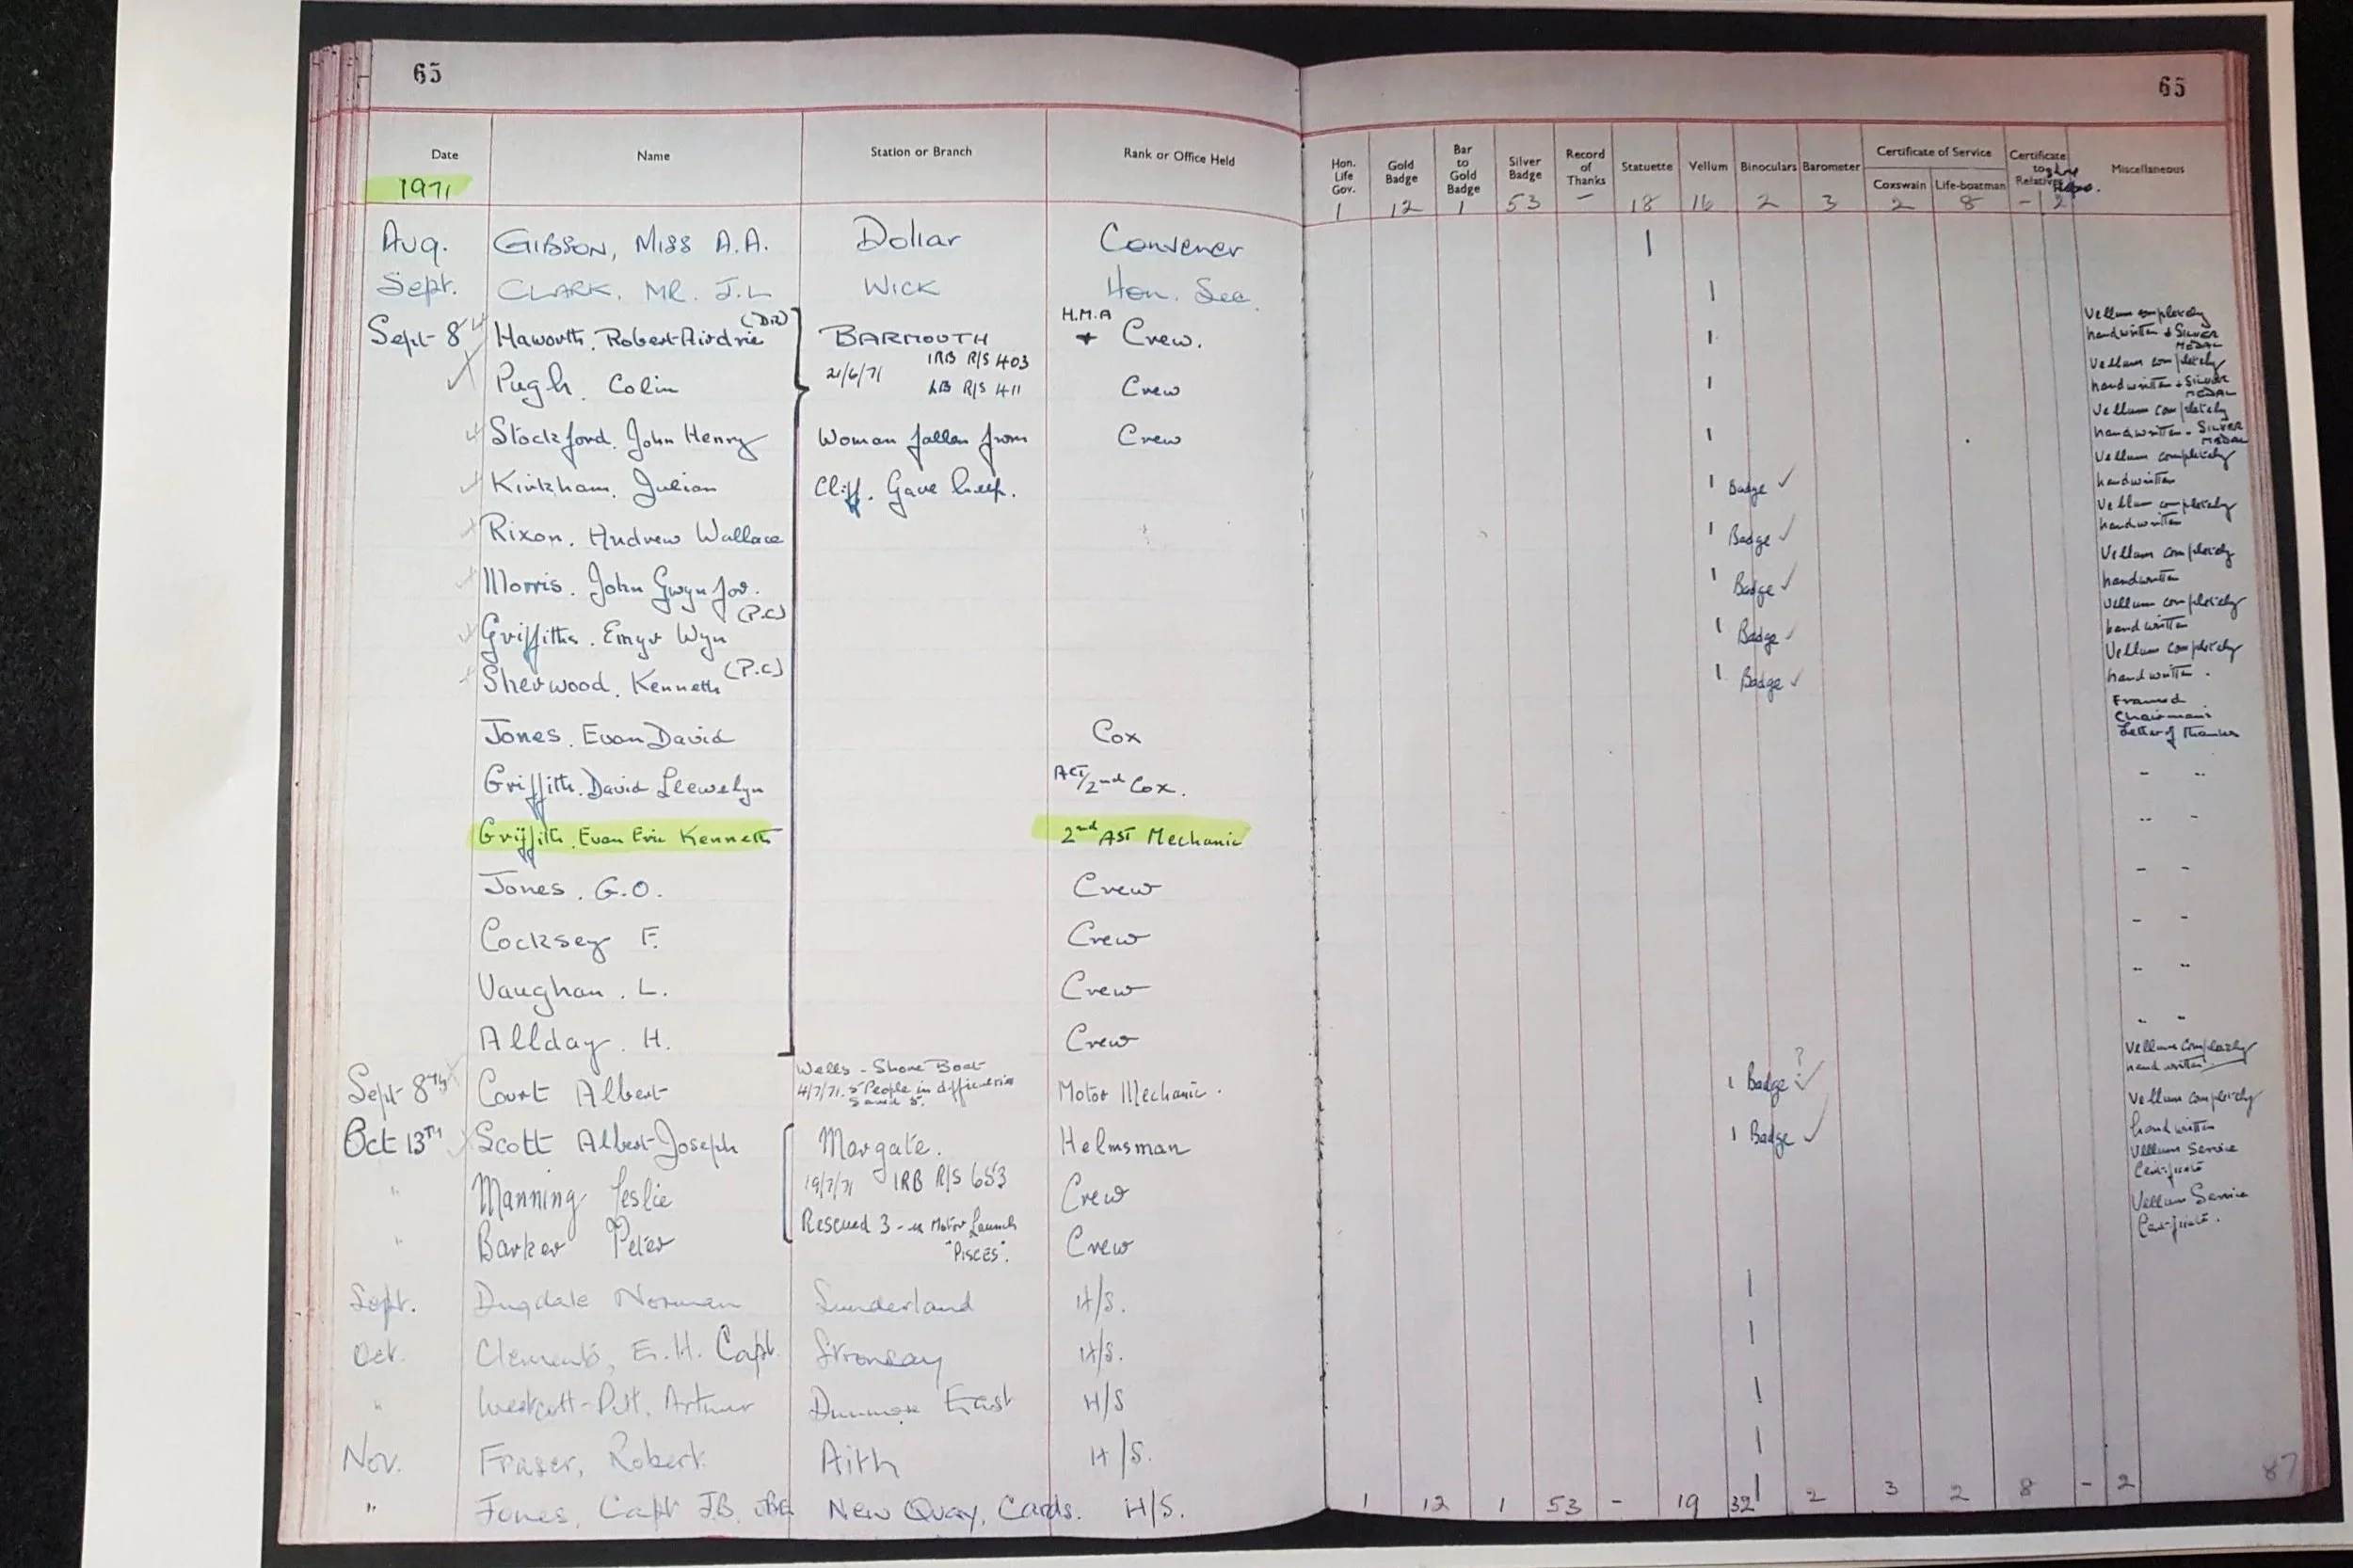 65
65
Date Name Station or Branch Rank or Office Held Hon. Life Gov. Gold Badge Bar to Gold Badge Silver Badge Record of Thanks Statuette Vellum Binoculars Barometer Certificate of Service Coxswain Life-boatman Certificate to Relatives Miscellaneous
1971 1 12 1 53 - 18 16 2 3 2 8 - 2
Aug. GIBSON, MISS A.A. Dollar Convener 1
Sept. CLARK, MR. J.L WICK Hon. Sec. 1
Sept 8th Haworth. Robert Airdrie (DR) BARMOUTH H.M.A + Crew. 1 Vellum completely handwritten + SILVER MEDAL
21/6/71 IRB R/S 403
LB R/S 411
Pugh. Colin Crew 1 Vellum completely handwritten + SILVER MEDAL
Stockford. John Henry Woman fallen from Crew 1 Vellum completely handwritten - SILVER MEDAL
Kirkham. Julian Cliff. Gave help. 1 Badge ✓ Vellum completely handwritten
Rixon. Andrew Wallace 1 Badge ✓ Vellum completely handwritten
Morris. John Gwynfor. 1 Badge ✓ Vellum completely handwritten
Griffiths. Emyr Wyn (P.C) 1 Badge ✓ Vellum completely handwritten
Sherwood. Kenneth (P.C) 1 Badge ✓ Vellum completely handwritten.
Jones. Evan David Cox Framed Chairman's Letter of Thanks
Griffith. David Llewelyn Act/2nd Cox. " "
Griffith. Evan Eric Kenneth 2nd AST Mechanic " "
Jones. G.O. Crew " "
Cocksey F. Crew " "
Vaughan. L. Crew " "
Allday. H. Crew " "
Sept 8th Court Albert Wells - Shore Boat 4/7/71. 5 People in difficulties Saved 5. Motor Mechanic. 1 Badge ? ✓ Vellum completely handwritten
Oct 13TH Scott Albert Joseph Margate. Helmsman 1 Badge ✓ Vellum completely handwritten
" Manning Leslie 19/7/71 IRB R/S 653 Crew Vellum Service Certificate
" Barker Peter Rescued 3 - Motor Launch "PISCES". Crew Vellum Service Certificate.
Sept. Dugdale Norman Sunderland H/S. 1
Oct. Clements, E.H. Capt. Stronsay H/S. 1
" Westcott-Pitt, Arthur Dunmore East H/S 1
Nov. Fraser, Robert Aith H/S. 1
" Jones, Capt J.B. New Quay, Cards. H/S. 1
1 12 1 53 - 19 32 2 3 2 8 - 2
87